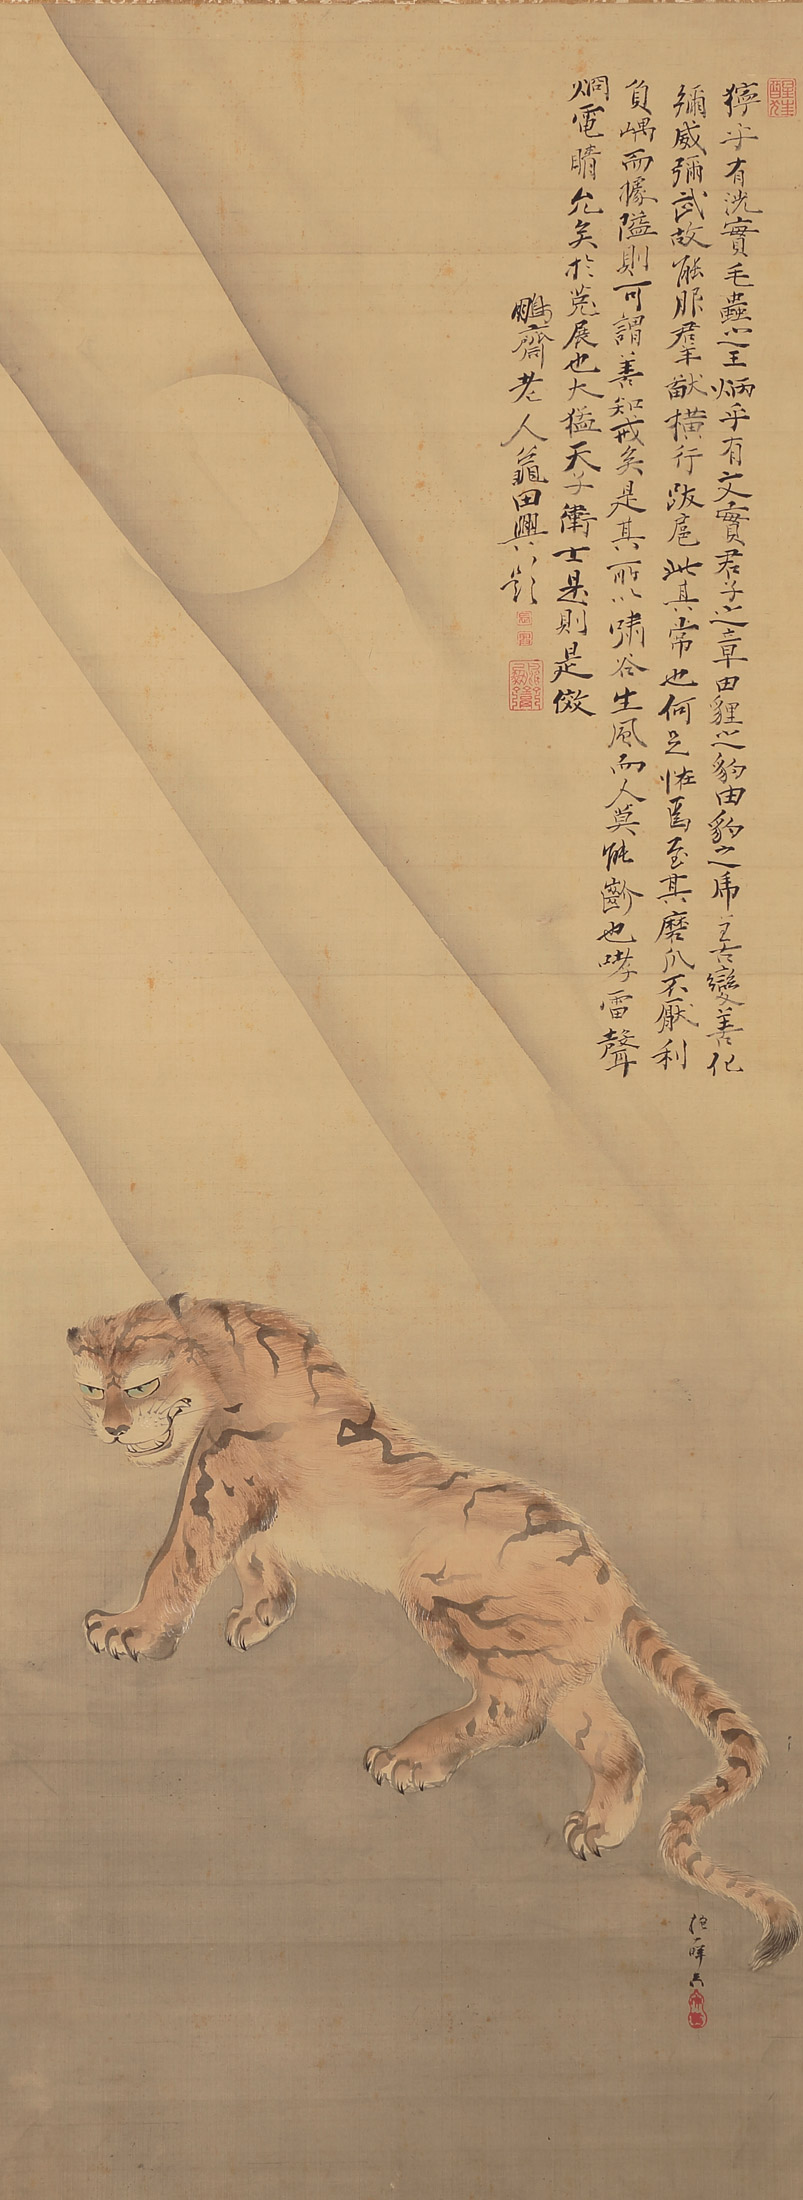 獰乎有洸實毛蟲之王炳乎有文實君子之章由貍之豹由豹之虎善變善化
彌威彌武故能服君羊猷橫行跋扈此其常也何足怪焉至其磨爪不厭利
負嵎而據隘則可謂善知戒矣是其所以嘯谷生風而人莫能齡也哮雷聲
烱電睛允矣於菟展也大猛天子衛士是則是傚
鵬齋老人龜田興